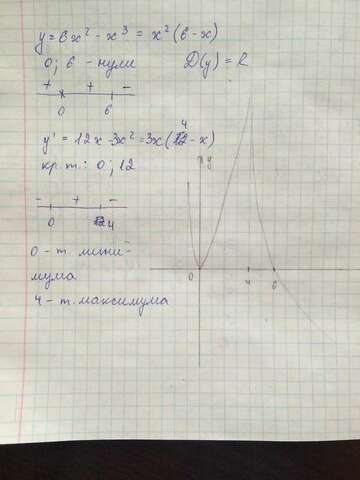 y = 6x² - x³ = x²(6-x)
0; 6 - нули D(y) = R
+ + -
0 6
4
y' = 12x - 3x² = 3x(12 - x)
кр.т.: 0; 12
- + -
0 12 4
0 - т. мини-
мума
4 - т. максимума
y
0 4 6